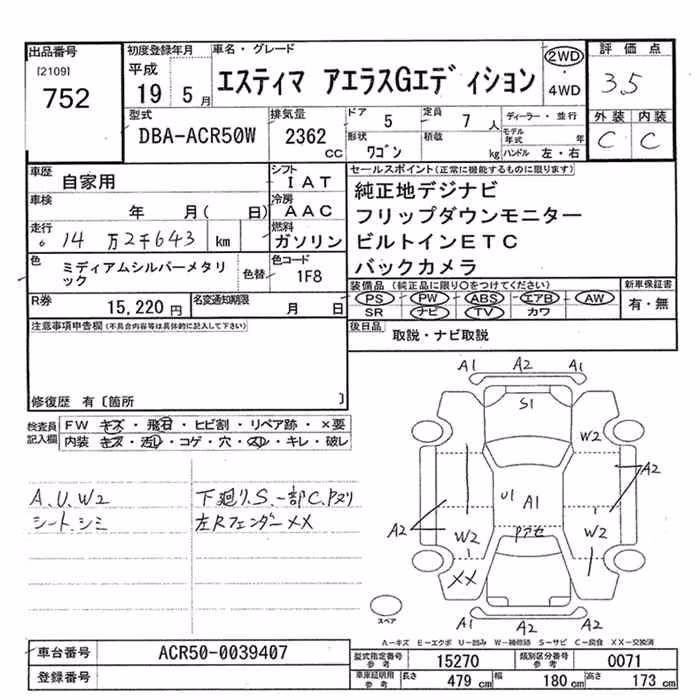 出品番号 初度登録年月 車名・グレード 評価点
[2109] 平成 エスティマ アエラスGエディション 2WD 3.5
752 19 5月 4WD
型式 排気量 ドア 5 定員 7人 ディーラー・並行 外装 内装
DBA-ACR50W 2362cc 形状 ワゴン 積載 kg モデル年式 年 C C
ハンドル 左・右
車歴 自家用 シフト IAT セールスポイント(正常に機能するものに限ります)
車検 年 月( 日) 冷房 AAC 純正地デジナビ
走行 14万2千643km 燃料 ガソリン フリップダウンモニター
色 ミディアムシルバーメタリック 色替 色コード 1F8 ビルトインETC
バックカメラ
装備品 (純正品に限り○をつけてください) 新車保証書
R券 15,220円 名変通知期限 月 日 PS PW ABS エアB AW 有・無
SR ナビ TV カワ
注意事項申告欄(不具合内容等は具体的に記入して下さい) 後日品 取説・ナビ取説
修復歴 有〔箇所 〕
検査員記入欄 FW キズ・飛石・ヒビ割・リペア跡・×要
内装 キズ・汚レ・コゲ・穴・スレ・キレ・破レ
A1 A2 A1
S1
W2
A2
U1 A1
A2 W2 Pアセ W2
XX
A2 A2 A2
スペア
A、U、W2 下廻リ、S、一部C、Pヌリ
シート、シミ 左Rフェンダー××
A-キズ E-エクボ U-凹み W-補修跡 S-サビ C-腐食 XX-交換済
車台番号 ACR50-0039407 型式指定番号 参考 15270 類別区分番号 参考 0071
登録番号 車庫証明用 参考 長さ 479cm 幅 180cm 高さ 173cm